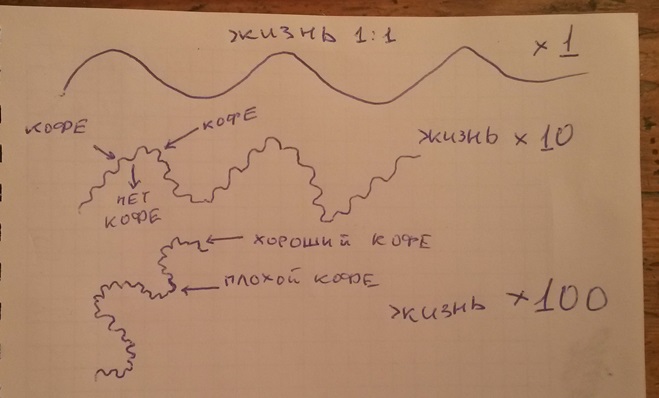 жизнь 1:1
× 1
кофе
кофе
жизнь × 10
нет
кофе
хороший кофе
плохой кофе
жизнь × 100